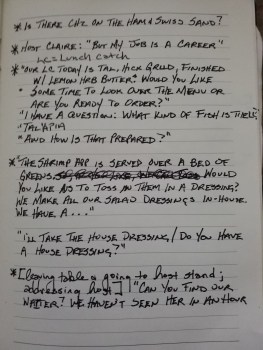 * Is there chz on the ham & swiss sand?
* Host Claire: "But my job is a career"
LC = Lunch Catch
* "Our LC today is Tal, Hick Grld, finished
w/ lemon hrb butter. Would you like
some time to look over the menu or
are you ready to order?"
"I have a question: what kind of fish is this?"
"Talapia"
"And how is that prepared?"
* "The shrimp app is served over a bed of
greens. Would
you like us to toss them in a dressing?
We make all our salad dressings in-house.
We have a..."
"I'll take the house dressing / Do you have
a house dressing?"
* [leaving table & going to host stand;
addressing host] "Can you find our
waiter? We haven't seen her in an hour